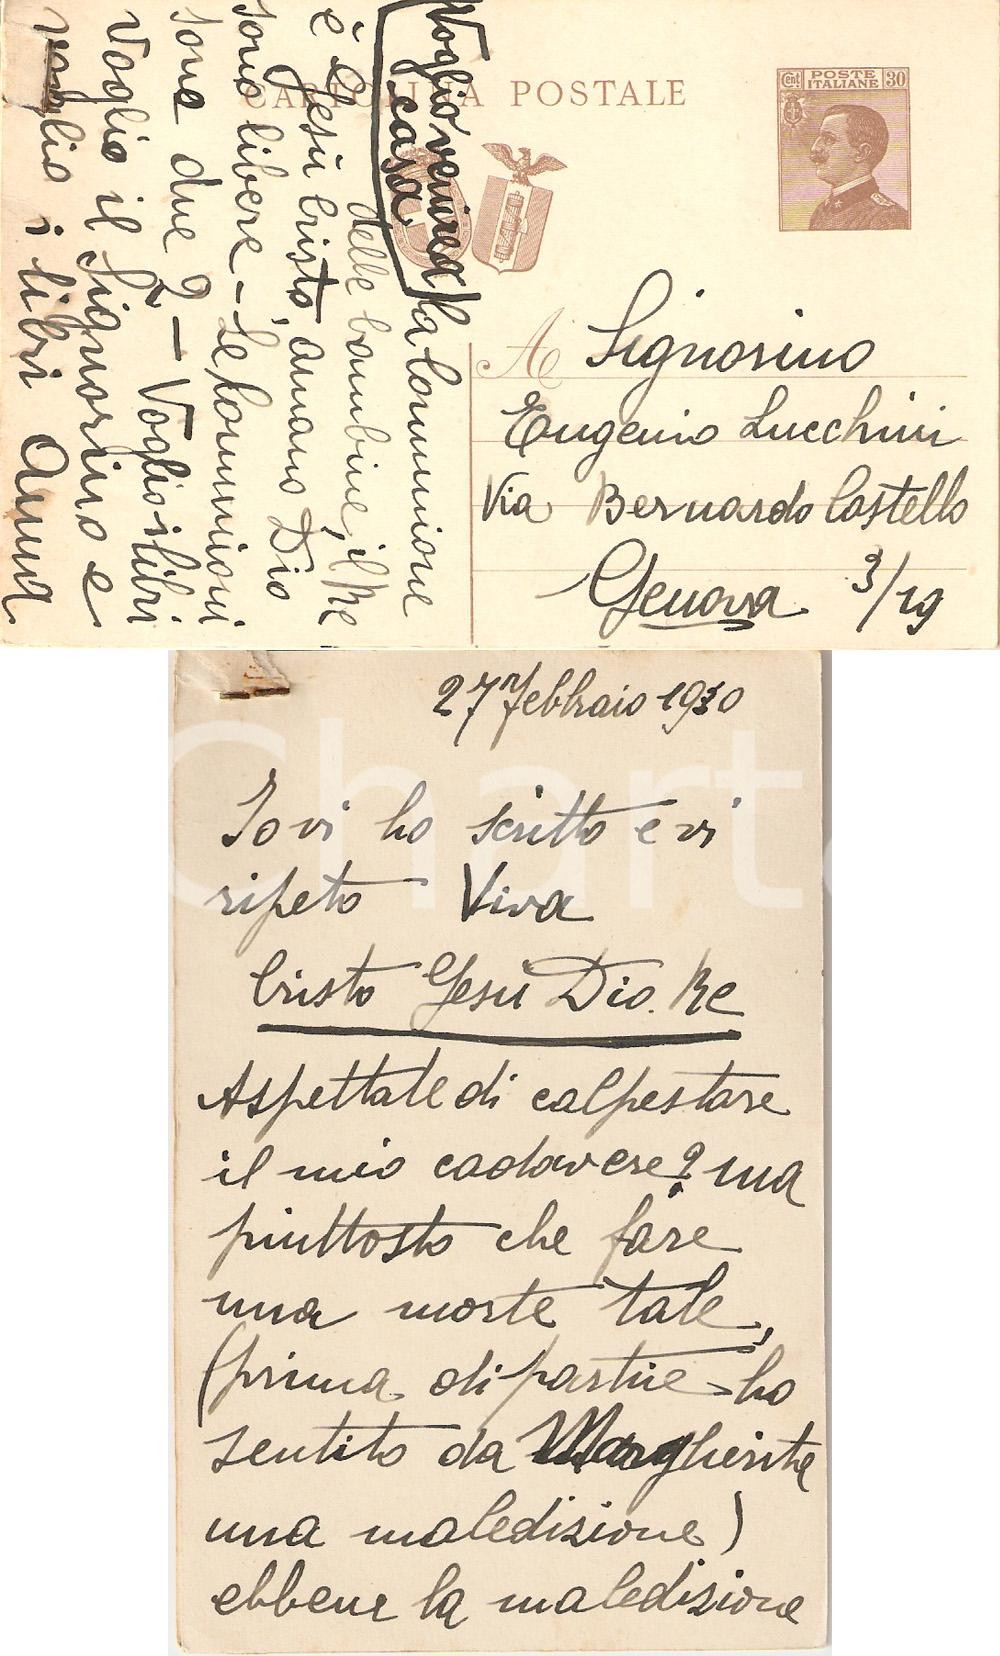 CARTOLINA POSTALE
Cent POSTE ITALIANE 30
A Signorino
Eugenio Lucchini
Via Bernardo Castello
Genova 3/19
Voglio venire a
casa
la Comunione
delle bambine, il Re
è Gesù Cristo, amano Dio
sono libere - Le Comunioni
sono due ? - Voglio i libri
Voglio il Signorino e
voglio i libri Anna
27 Febbraio 1930
Io vi ho scritto e vi
ripeto Viva
Cristo Gesù Dio. Re
Aspettate di calpestare
il mio cadavere? ma
piuttosto che fare
una morte tale,
(prima di partire ho
sentito da Margherita
una maledizione)
ebbene la maledizione
Chart